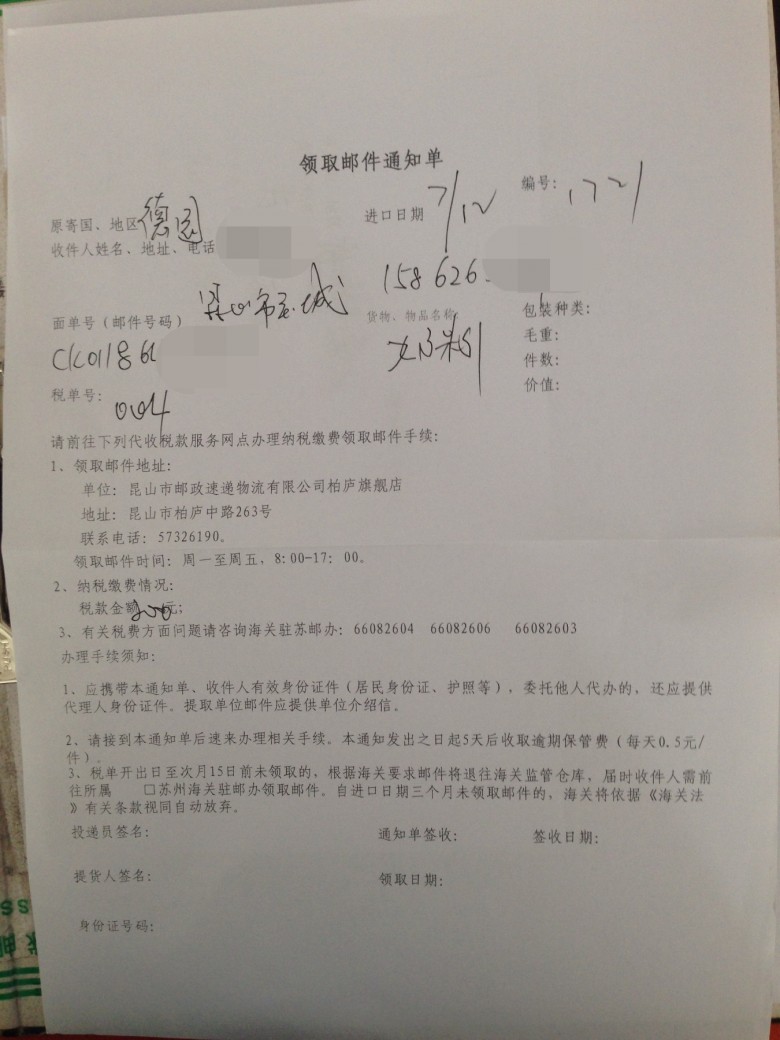 领取邮件通知单
编号: 1721
原寄国、地区 德国
进口日期 7/12
收件人姓名、地址、电话
昆山市玉城
158626
面单号（邮件号码）
CK01186
货物、物品名称
奶粉
包装种类:
毛重:
件数:
价值:
税单号:
004
请前往下列代收税款服务网点办理纳税缴费领取邮件手续:
1、领取邮件地址:
单位: 昆山市邮政速递物流有限公司柏庐旗舰店
地址: 昆山市柏庐中路263号
联系电话: 57326190。
领取邮件时间: 周一至周五, 8:00-17: 00。
2、纳税缴费情况:
税款金额200元;
3、有关税费方面问题请咨询海关驻苏邮办: 66082604 66082606 66082603
办理手续须知:
1、应携带本通知单、收件人有效身份证件（居民身份证、护照等）, 委托他人代办的, 还应提供
代理人身份证件。提取单位邮件应提供单位介绍信。
2、请接到本通知单后速来办理相关手续。本通知发出之日起5天后收取逾期保管费（每天0.5元/
件）。
3、税单开出日至次月15日前未领取的, 根据海关要求邮件将退往海关监管仓库, 届时收件人需前
往所属 □苏州海关驻邮办领取邮件。自进口日期三个月未领取邮件的, 海关将依据《海关法
》有关条款视同自动放弃。
投递员签名:
通知单签收:
签收日期:
提货人签名:
领取日期:
身份证号码: